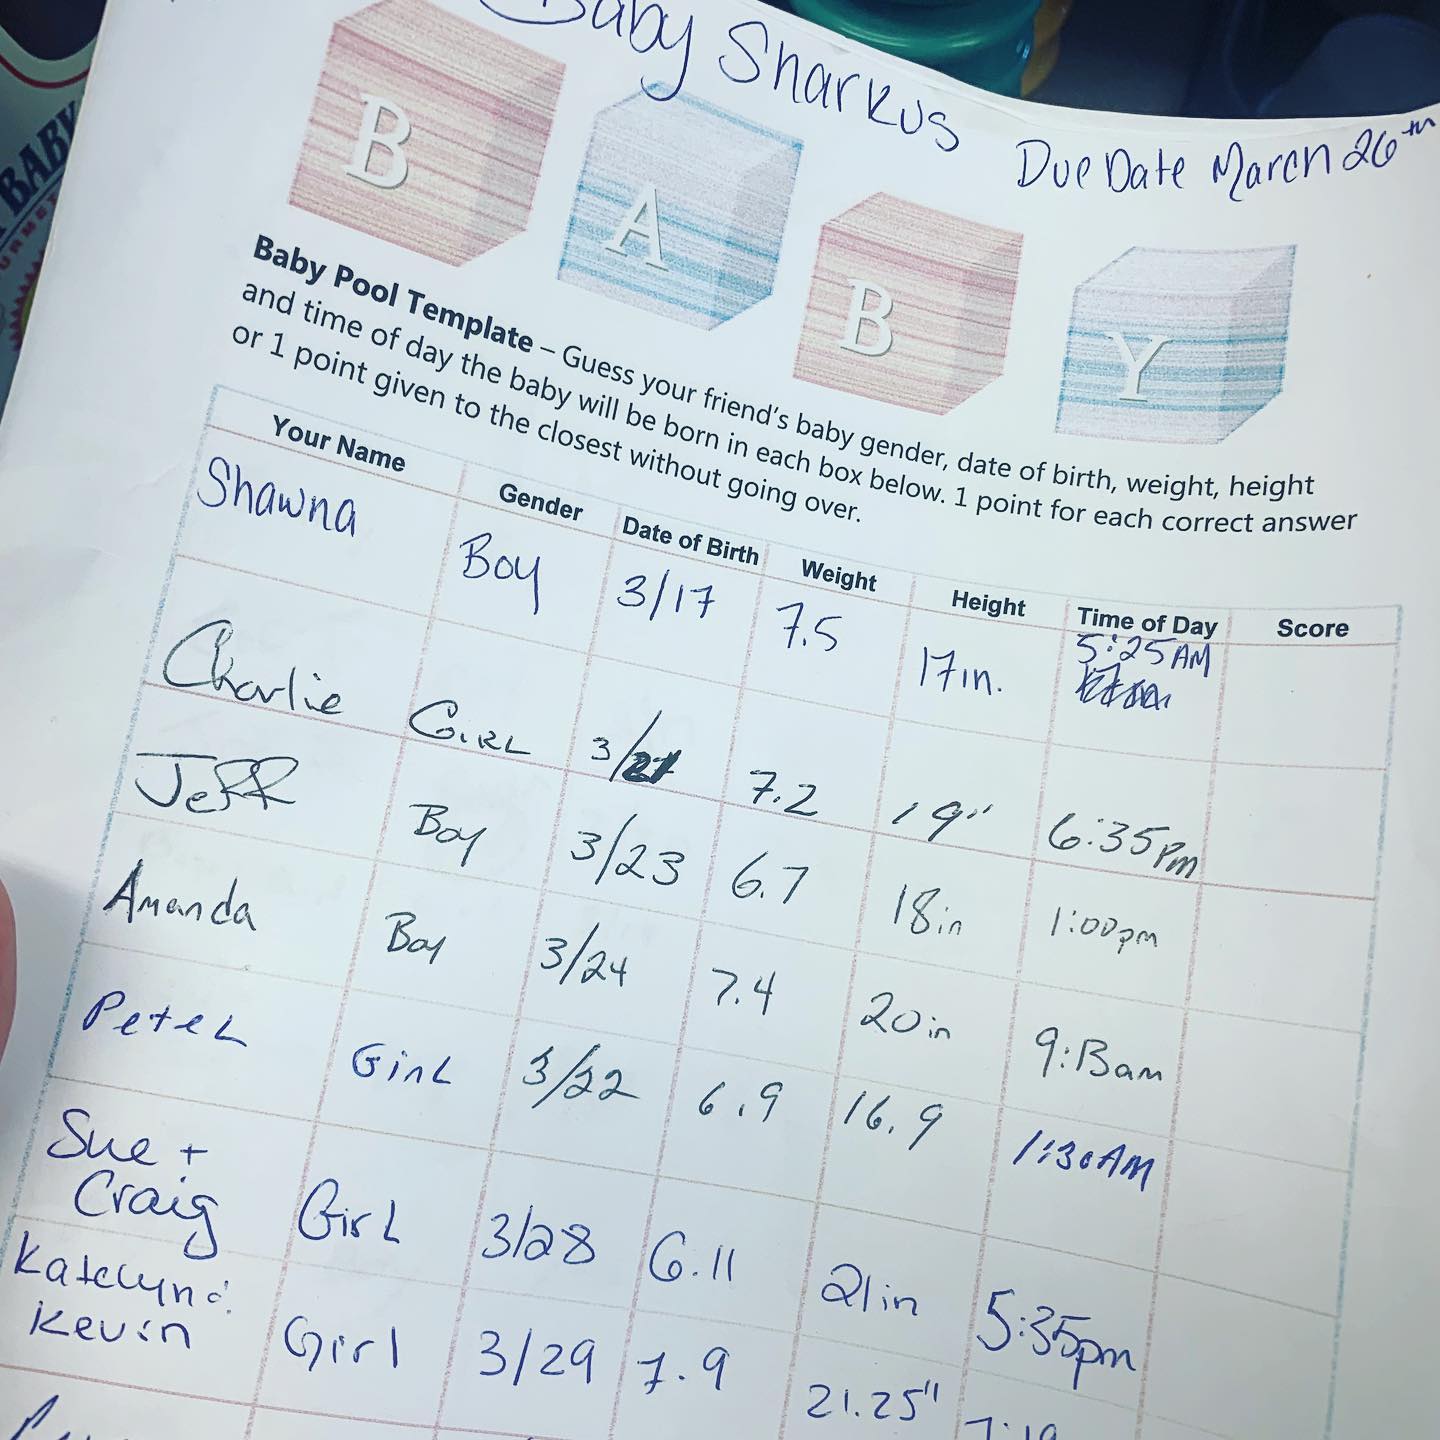 Baby Sharkus
Due Date March 26th
B A B Y
BABY
Baby Pool Template – Guess your friend's baby gender, date of birth, weight, height
and time of day the baby will be born in each box below. 1 point for each correct answer
or 1 point given to the closest without going over.
Your Name Gender Date of Birth Weight Height Time of Day Score
Shawna Boy 3/17 7.5 17in. 5:25AM
Charlie GIRL 3/21 7.2 19" 6:35pm
Jeff Boy 3/23 6.7 18in 1:00pm
Amanda Boy 3/24 7.4 20in 9:13am
Pete L Girl 3/22 6.9 16.9 1:30AM
Sue + 
Craig Girl 3/28 6.11 21in 5:35pm
Katelyn &
Kevin Girl 3/29 7.9 21.25" 7:19